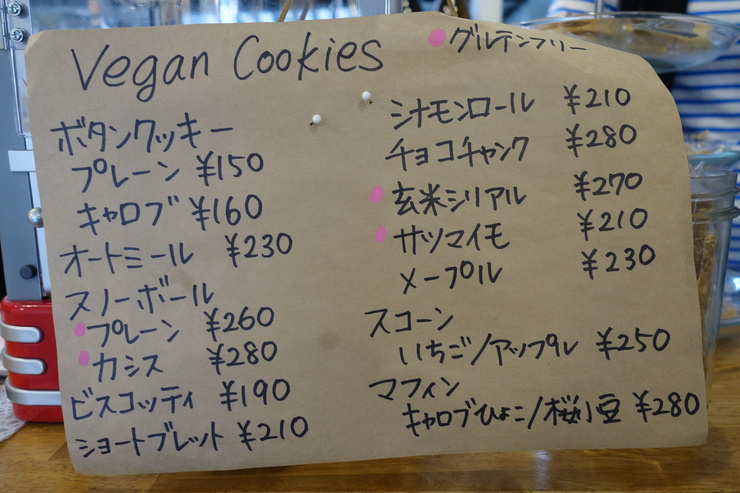 Vegan Cookies
グルテンフリー
ボタンクッキー
プレーン ¥150
キャロブ ¥160
オートミール ¥230
スノーボール
プレーン ¥260
カシス ¥280
ビスコッティ ¥190
ショートブレット ¥210
シナモンロール ¥210
チョコチャンク ¥280
玄米シリアル ¥270
サツマイモ ¥210
メープル ¥230
スコーン
いちご/アップル ¥250
マフィン
キャロブひよこ/桜小豆 ¥280